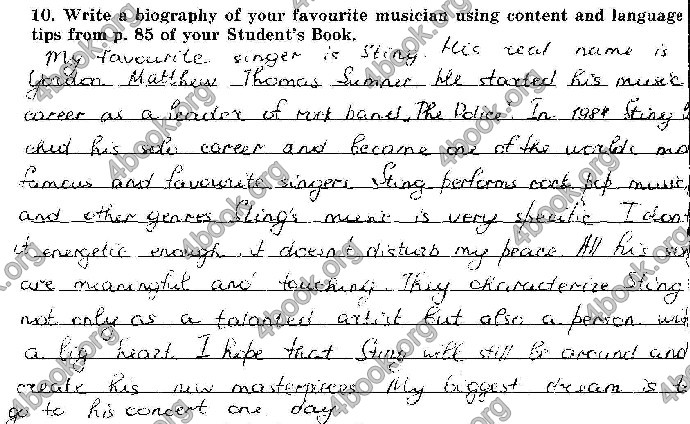 10. Write a biography of your favourite musician using content and language
tips from p. 85 of your Student's Book.
My favourite singer is Sting. His real name is
Gordon Matthew Thomas Sumner. He started his music
career as a leader of rock band „The Police". In 1984 Sting
ched his solo career and became one of the worlds mo
famous and favourite singers. Sting performs rock, pop music,
and other genres. Sting's music is very specific. I don't
it energetic enough, it doesn't disturb my peace. All his son
are meaningful and touching. They characterize Sting
not only as a talanted artist but also a person with
a big heart. I hope that Sting will still be around and
create his new masterpieces. My biggest dream is t
go to his concert one day.
4book.org